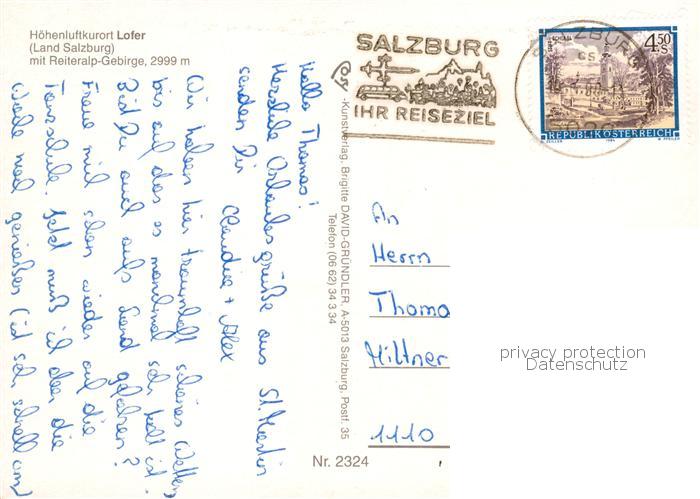 Höhenluftkurort Lofer
(Land Salzburg)
mit Reiteralp-Gebirge, 2999 m
SALZBURG
IHR REISEZIEL
SALZBURG
4.50
S
REPUBLIK ÖSTERREICH
Hallo Thomas!
Herzliche Urlaubsgrüße aus St. Martin
senden Dir Claudia + Alex
Wir haben hier traumhaft schönes Wetter
bis auf das es manchmal sehr kalt ist.
Bist Du auch aufs Land gefahren?
Freue mich schon wieder auf die
Tanzschule. Jetzt muß ich aber die
Woche noch genießen (ist sehr schnell um)
-Kunstverlag, Brigitte DAVID-GRÜNDLER, A-5013 Salzburg, Postf. 35
Telefon (06 62) 34 3 34
An
Herrn
Thoma
Miltner
1110
privacy protection
Datenschutz
Nr. 2324